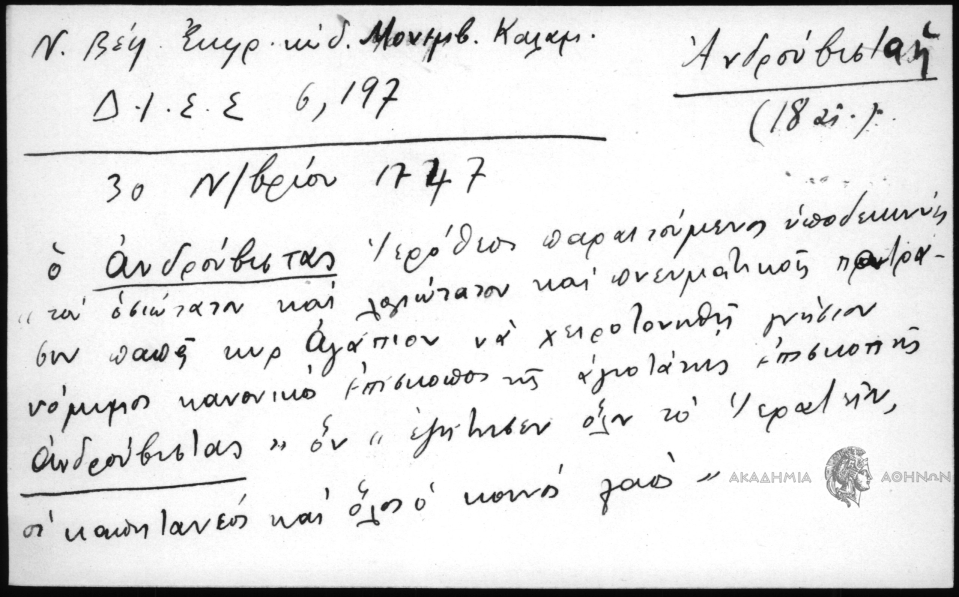 Ν. Βέη. Ἔκφρ. κώδ. Μονεμβ. Καλαμ.
Δ.Ι.Ε.Ε 6, 197
Ἀνδρούβιστα ἡ
(18 αἰ.)
30 Ν/βρίου 1747
ὁ Ἀνδρούβιστας Ἱερόθεος παραιτούμενος ὑποδεικνύει
"τὸν ὁσιώτατον καὶ λογιώτατον καὶ πνευματικὸς
συν παπᾶ κυρ Ἀγάπιον νὰ χειροτονηθῆ γνήσιον
νόμιμος κανονικὸ ἐπίσκοπος τῆς ἁγιοτάτης ἐπισκοπῆς
Ἀνδρούβιστας" ὅν "ἐζήτησεν ὅλον τὸ Ἱερατεῖον,
οἱ καπητανέοι καὶ ὅλος ὁ κοινὸς λαὸς"
ΑΚΑΔΗΜΙΑ ΑΘΗΝΩΝ